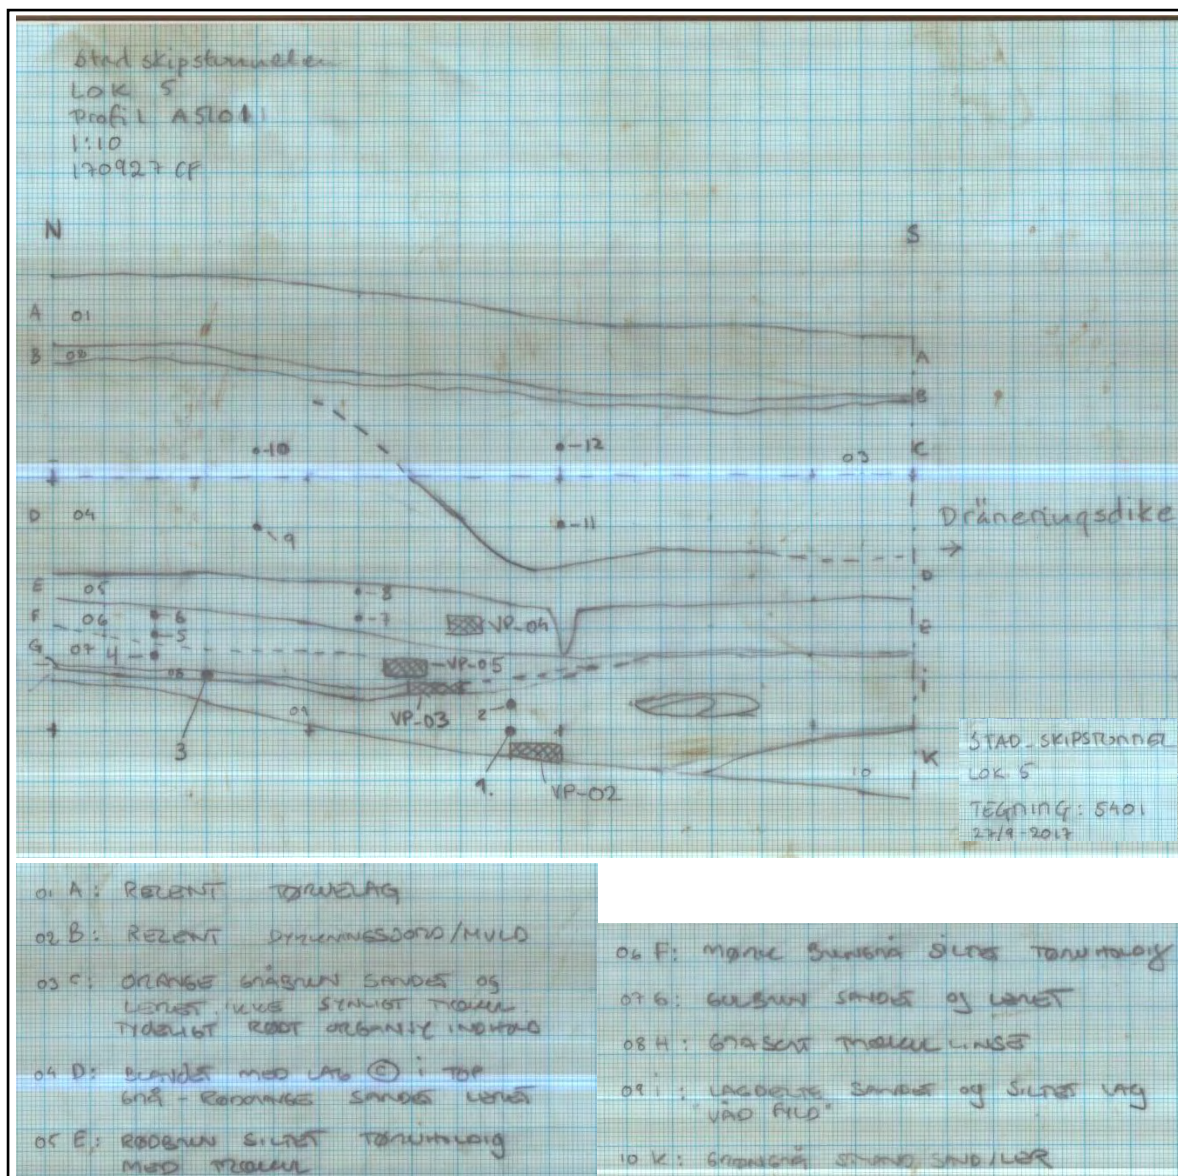 Stad skipstunnelen
LOK 5
Profil
1:10
170927 CF
N
S
A
01
B
02
A
B
-10
-12
03
C
D
04
9
-11
Dräneringsdike
→
D
E
05
-8
F
06
-6
-7
VP-04
-5
E
G
07
4
VP-05
08
i
VP-03
2
09
3
1.
VP-02
10
K
STAD SKIPSTUNNEL
LOK 5
TEGNING: 5401
27/9-2017
01 A: RECENT TØRVELAG
02 B: RECENT DYRKNINGSJORD/MULD
03 C: ORANGE GRÅBRUN SANDET OG
LERET. IKKE SYNLIGT TRÆKUL.
TYDELIGT RØDT ORGANISK INDHOLD
04 D: BLANDET MED LAG Ⓒ i TOP
GRÅ - RØDORANGE SANDET LERET
05 E: RØDBRUN SILTET TØRVHOLDIG
MED TRÆKUL
06 F: MØRK BRUNGRÅ SILTET TØRVHOLDIG
07 G: GULBRUN SANDET og LERET
08 H: GRÅSORT TRÆKUL LINSE
09 i: LAGDELTE SANDET og SILTET LAG
"VÅD FILD"
10 K: GRØNGRÅ STRAND SAND/LER